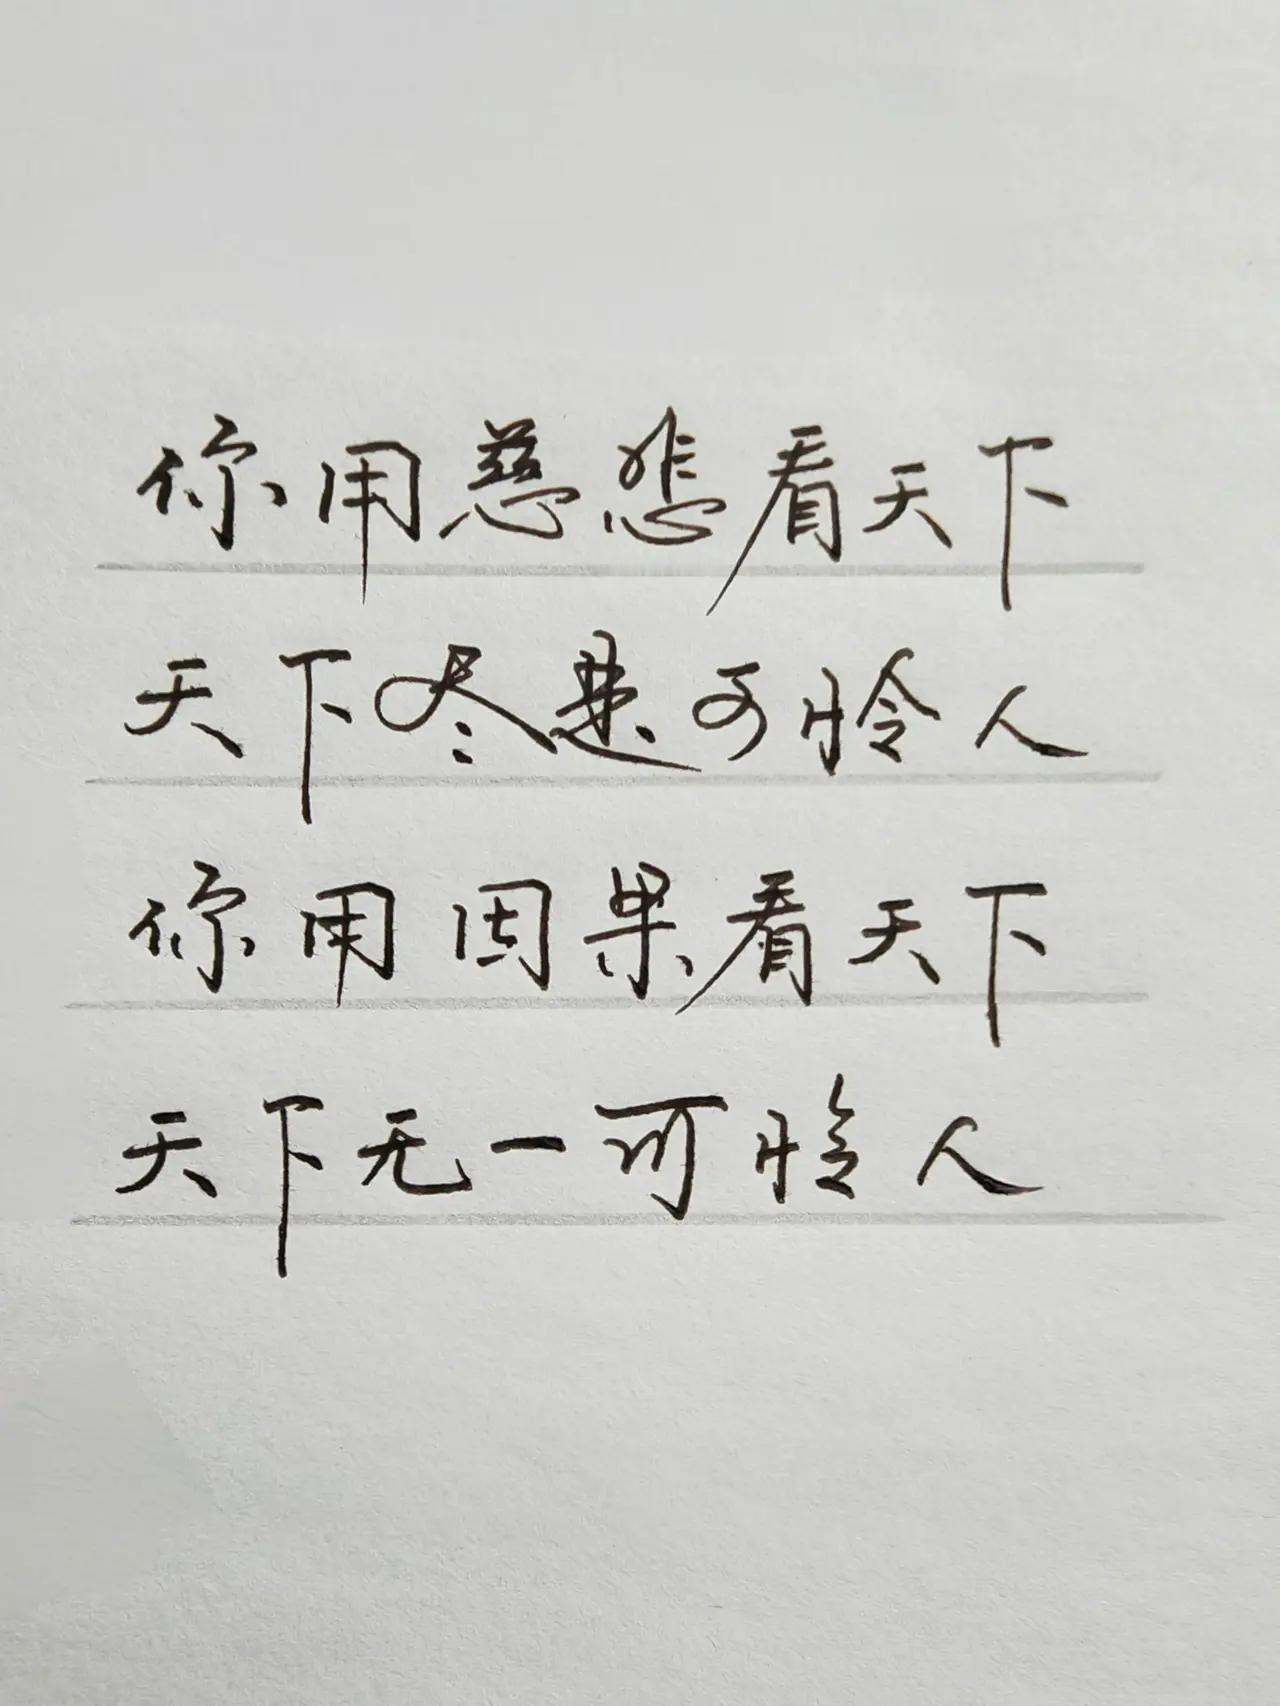 你用慈悲看天下
天下尽是可怜人
你用因果看天下
天下无一可怜人